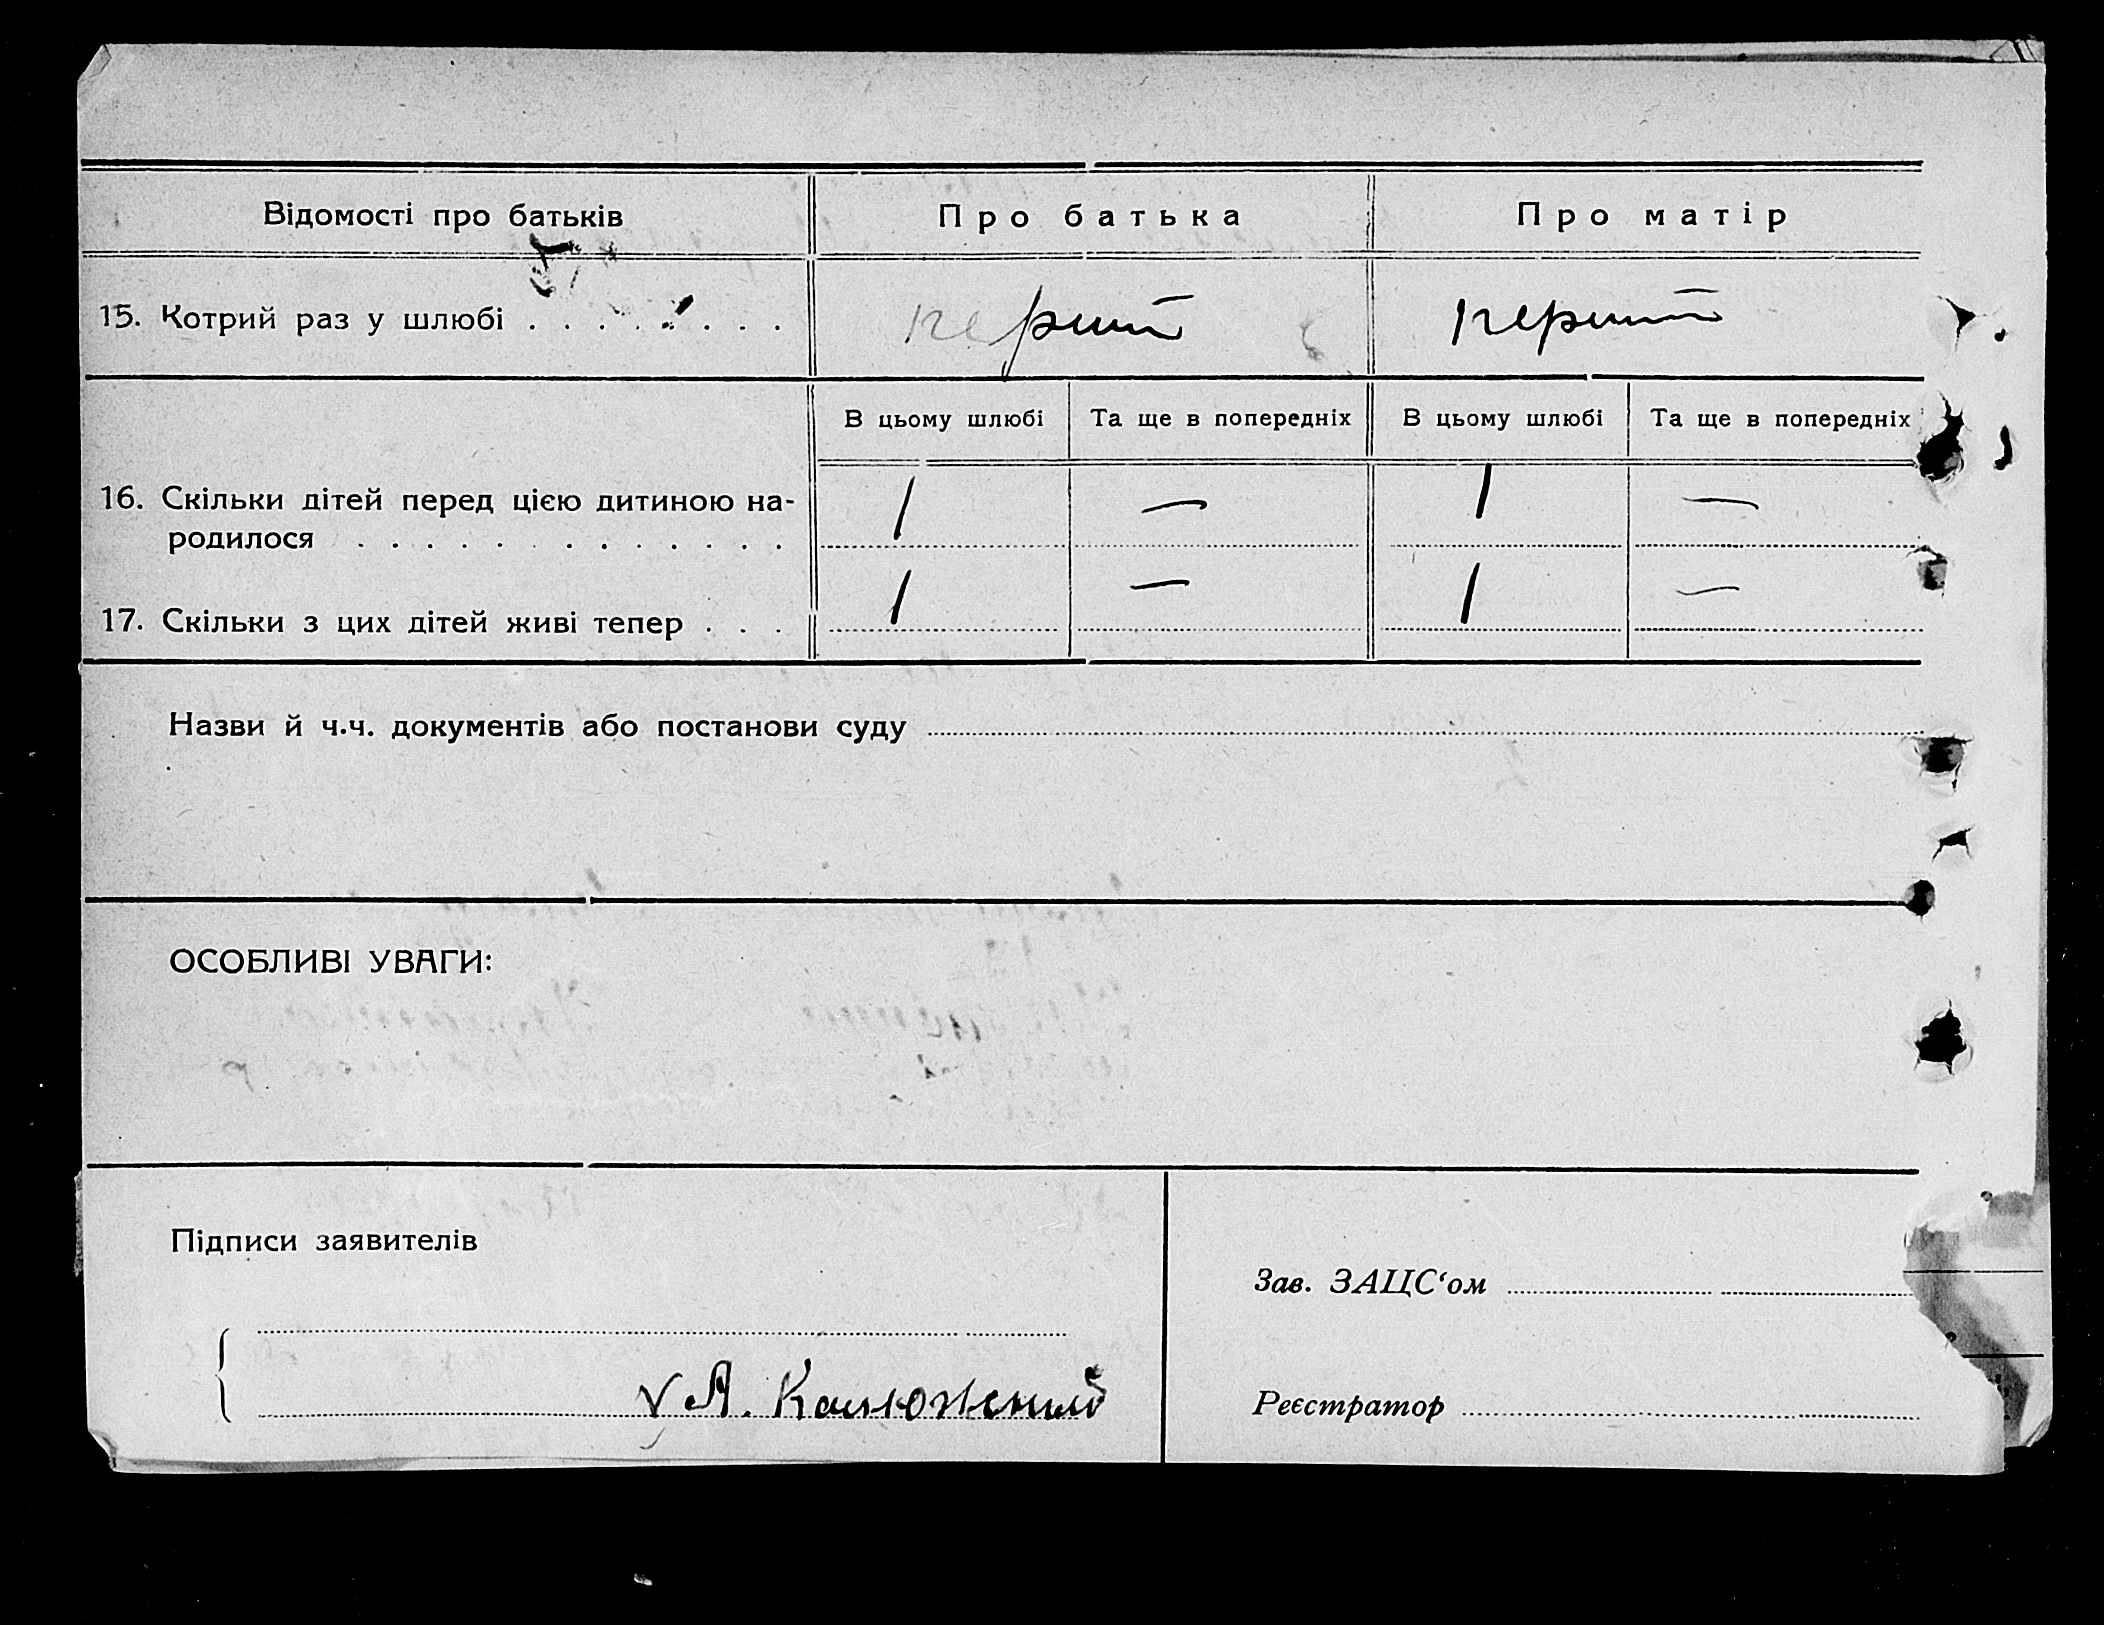 Відомості про батьків Про батька Про матір
15. Котрий раз у шлюбі . . . . . . . . перший перший
В цьому шлюбі Та ще в попередніх В цьому шлюбі Та ще в попередніх
16. Скільки дітей перед цією дитиною на-
родилося . . . . . . . . . . . . . 1 — 1 —
17. Скільки з цих дітей живі тепер . . . 1 — 1 —
Назви й ч.ч. документів або постанови суду
ОСОБЛИВІ УВАГИ:
Підписи заявителів
Зав. ЗАЦС‘ом
А. Калюжний
Реєстратор